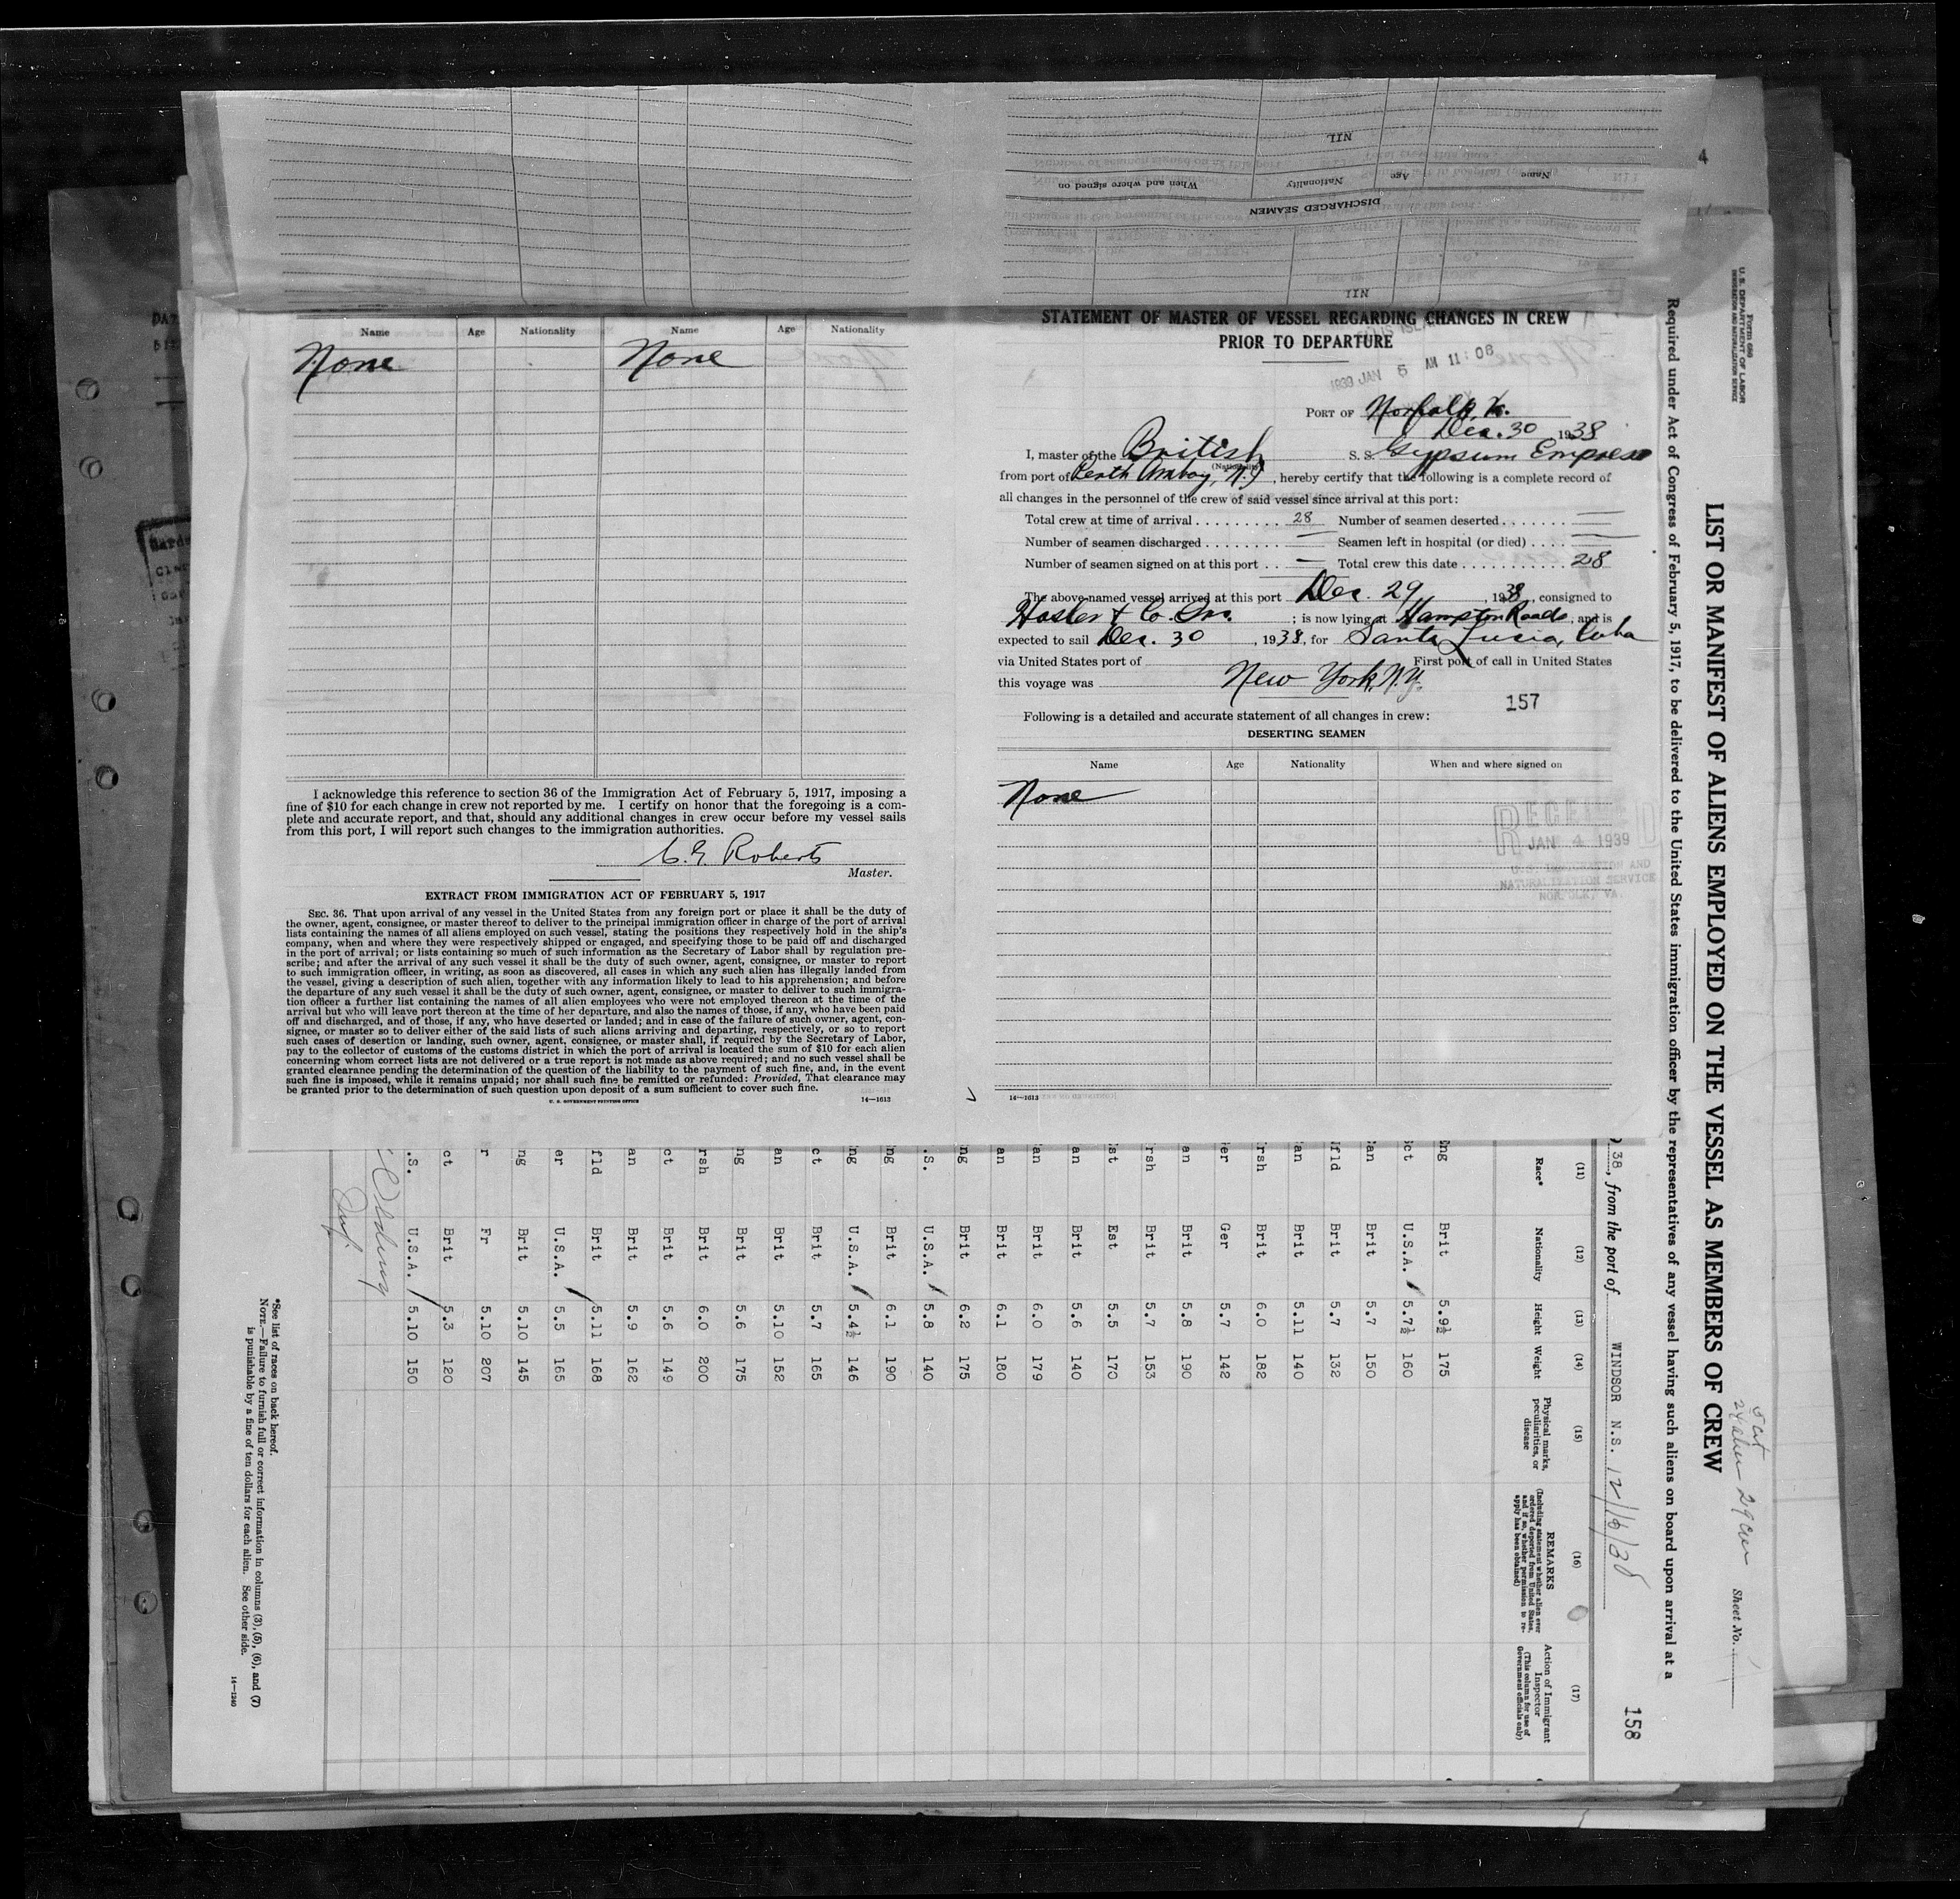 NIL
When and where signed on
Nationality
Age
Name
DISCHARGED SEAMEN
NIL
4
Name Age Nationality Name Age Nationality
None None
I acknowledge this reference to section 36 of the Immigration Act of February 5, 1917, imposing a
fine of $10 for each change in crew not reported by me. I certify on honor that the foregoing is a com-
plete and accurate report, and that, should any additional changes in crew occur before my vessel sails
from this port, I will report such changes to the immigration authorities.
C. G. Roberts
Master.
EXTRACT FROM IMMIGRATION ACT OF FEBRUARY 5, 1917
SEC. 36. That upon arrival of any vessel in the United States from any foreign port or place it shall be the duty of
the owner, agent, consignee, or master thereof to deliver to the principal immigration officer in charge of the port of arrival
lists containing the names of all aliens employed on such vessel, stating the positions they respectively hold in the ship's
company, when and where they were respectively shipped or engaged, and specifying those to be paid off and discharged
in the port of arrival; or lists containing so much of such information as the Secretary of Labor shall by regulation pre-
scribe; and after the arrival of any such vessel it shall be the duty of such owner, agent, consignee, or master to report
to such immigration officer, in writing, as soon as discovered, all cases in which any such alien has illegally landed from
the vessel, giving a description of such alien, together with any information likely to lead to his apprehension; and before
the departure of any such vessel it shall be the duty of such owner, agent, consignee, or master to deliver to such immigra-
tion officer a further list containing the names of all alien employees who were not employed thereon at the time of the
arrival but who will leave port thereon at the time of her departure, and also the names of those, if any, who have been paid
off and discharged, and of those, if any, who have deserted or landed; and in case of the failure of such owner, agent, con-
signee, or master so to deliver either of the said lists of such aliens arriving and departing, respectively, or so to report
such cases of desertion or landing, such owner, agent, consignee, or master shall, if required by the Secretary of Labor,
pay to the collector of customs of the customs district in which the port of arrival is located the sum of $10 for each alien
concerning whom correct lists are not delivered or a true report is not made as above required; and no such vessel shall be
granted clearance pending the determination of the question of the liability to the payment of such fine, and, in the event
such fine is imposed, while it remains unpaid; nor shall such fine be remitted or refunded: Provided, That clearance may
be granted prior to the determination of such question upon deposit of a sum sufficient to cover such fine.
U. S. GOVERNMENT PRINTING OFFICE 14—1613
STATEMENT OF MASTER OF VESSEL REGARDING CHANGES IN CREW
PRIOR TO DEPARTURE
JAN 5 AM 11:08
PORT OF Norfolk, Va.
Dec. 30 1938
I, master of the British S. S. Gypsum Empress
(Nationality)
from port of Perth Amboy, N.J., hereby certify that the following is a complete record of
all changes in the personnel of the crew of said vessel since arrival at this port:
Total crew at time of arrival 28 Number of seamen deserted —
Number of seamen discharged — Seamen left in hospital (or died) —
Number of seamen signed on at this port — Total crew this date 28
The above-named vessel arrived at this port Dec. 29, 1938, consigned to
Hasler & Co. Inc.; is now lying at Hampton Roads, and is
expected to sail Dec. 30, 1938, for Santa Lucia, Cuba
via United States port of First port of call in United States
this voyage was New York, N.Y.
157
Following is a detailed and accurate statement of all changes in crew:
DESERTING SEAMEN
Name Age Nationality When and where signed on
None
RECEIVED
JAN 4 1939
U.S. IMMIGRATION AND
NATURALIZATION SERVICE
NORFOLK, VA.
14—1613
Form 680
U. S. DEPARTMENT OF LABOR
IMMIGRATION AND NATURALIZATION SERVICE
Sheet No.
29 crew
LIST OR MANIFEST OF ALIENS EMPLOYED ON THE VESSEL AS MEMBERS OF CREW
Required under Act of Congress of February 5, 1917, to be delivered to the United States immigration officer by the representatives of any vessel having such aliens on board upon arrival at a
158
38, from the port of WINDSOR N.S. 12/16/38
(11) (12) (13) (14) (15) (16) (17)
Race* Nationality Height Weight Physical marks, peculiarities, or disease REMARKS (Including statement whether alien ever ordered deported from United States, and if so, whether permission to re-apply has been obtained) Action of Immigrant Inspector (This column for use of Government officials only)
ng Brit 5.9½ 175
ct U.S.A. 5.7½ 160
an Brit 5.7 150
fld Brit 5.7 132
an Brit 5.11 140
rsh Brit 6.0 182
er Ger 5.7 142
an Brit 5.8 190
rsh Brit 5.7 153
st Est 5.5 170
an Brit 5.6 140
an Brit 6.0 179
an Brit 6.1 180
ng Brit 6.2 175
.S. U.S.A. 5.8 140
ng Brit 6.1 190
ng U.S.A. 5.4½ 146
ct Brit 5.7 165
an Brit 5.10 152
ng Brit 5.6 175
rsh Brit 6.0 200
ct Brit 5.6 149
an Brit 5.9 162
fld Brit 5.11 168
er U.S.A. 5.5 165
ng Brit 5.10 145
r Fr 5.10 207
ct Brit 5.3 120
.S. U.S.A. 5.10 150
*See list of races on back hereof.
NOTE.—Failure to furnish full or correct information in columns (3), (5), (6), and (7)
is punishable by a fine of ten dollars for each alien. See other side.
14—1240